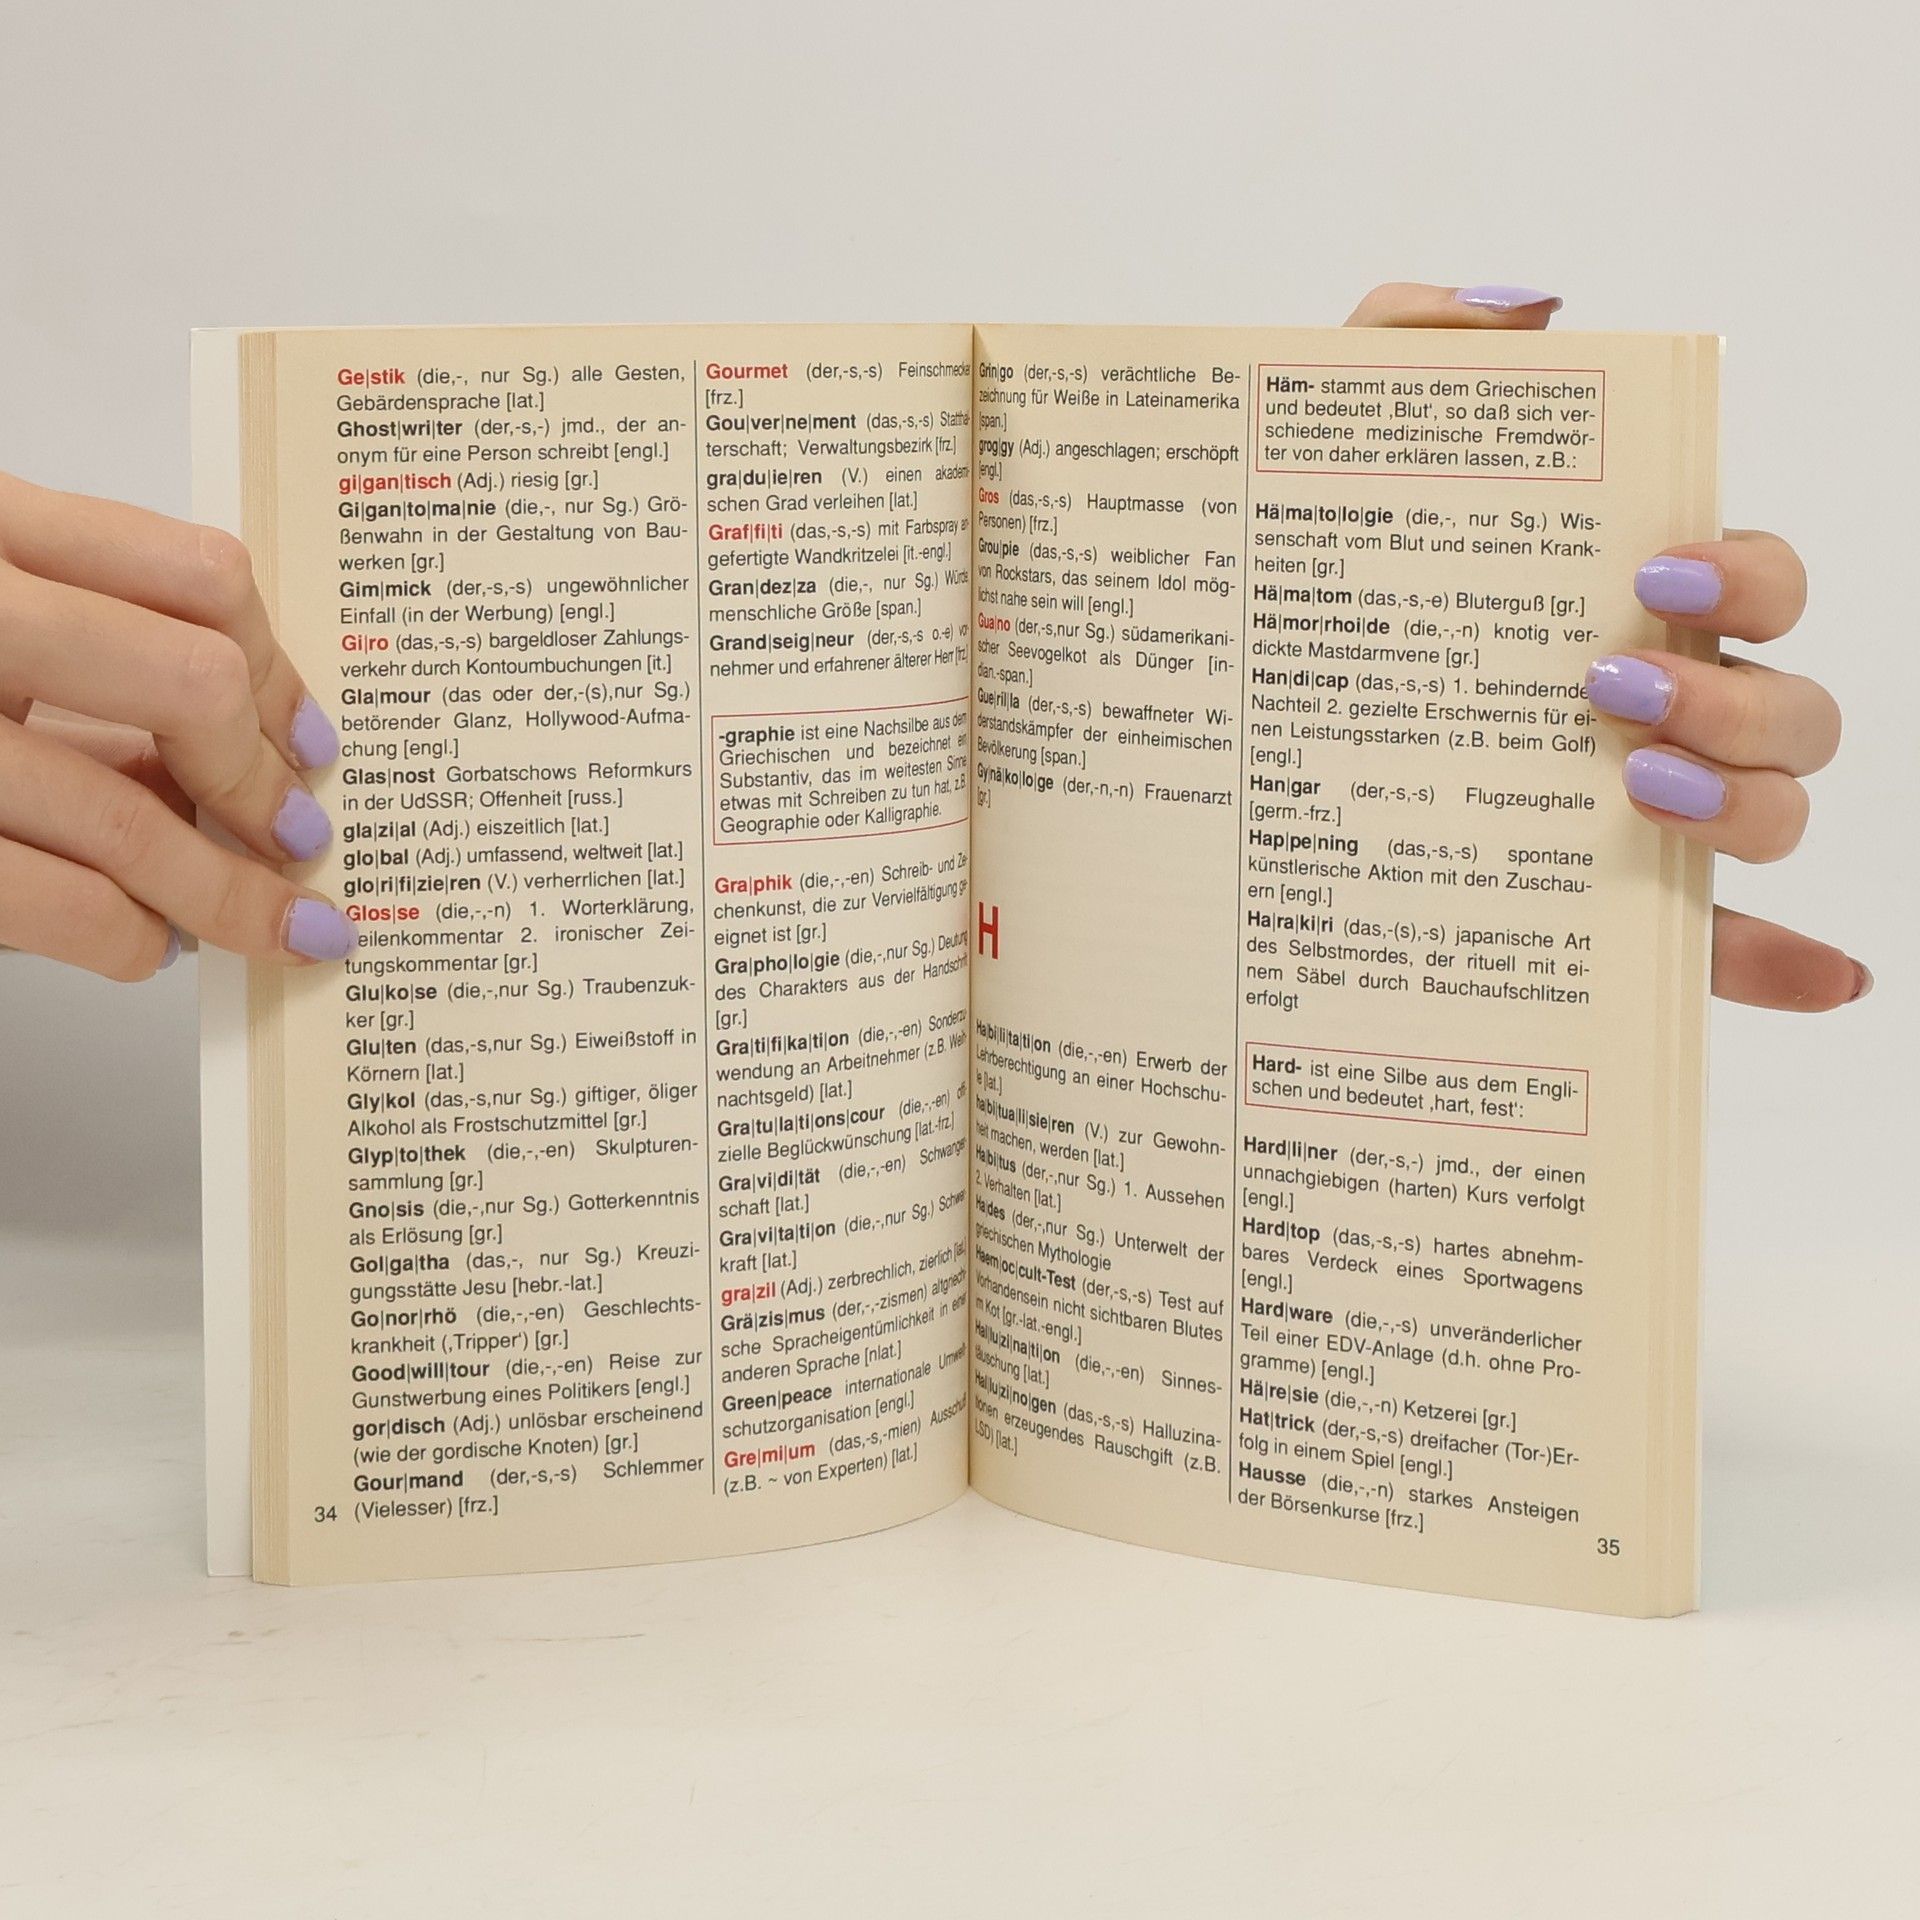 Ge|stik (die,-, nur Sg.) alle Gesten,
Gebärdensprache [lat.]
Ghost|wri|ter (der,-s,-) jmd., der an-
onym für eine Person schreibt [engl.]
gi|gan|tisch (Adj.) riesig [gr.]
Gi|gan|to|ma|nie (die,-, nur Sg.) Grö-
ßenwahn in der Gestaltung von Bau-
werken [gr.]
Gim|mick (der,-s,-s) ungewöhnlicher
Einfall (in der Werbung) [engl.]
Gi|ro (das,-s,-s) bargeldloser Zahlungs-
verkehr durch Kontoumbuchungen [it.]
Gla|mour (das oder der,-(s),nur Sg.)
betörender Glanz, Hollywood-Aufma-
chung [engl.]
Glas|nost Gorbatschows Reformkurs
in der UdSSR; Offenheit [russ.]
gla|zi|al (Adj.) eiszeitlich [lat.]
glo|bal (Adj.) umfassend, weltweit [lat.]
glo|ri|fi|zie|ren (V.) verherrlichen [lat.]
Glos|se (die,-,-n) 1. Worterklärung,
eilenkommentar 2. ironischer Zei-
tungskommentar [gr.]
Glu|ko|se (die,-,nur Sg.) Traubenzuk-
ker [gr.]
Glu|ten (das,-s,nur Sg.) Eiweißstoff in
Körnern [lat.]
Gly|kol (das,-s,nur Sg.) giftiger, öliger
Alkohol als Frostschutzmittel [gr.]
Glyp|to|thek (die,-,-en) Skulpturen-
sammlung [gr.]
Gno|sis (die,-,nur Sg.) Gotterkenntnis
als Erlösung [gr.]
Gol|ga|tha (das,-, nur Sg.) Kreuzi-
gungsstätte Jesu [hebr.-lat.]
Go|nor|rhö (die,-,-en) Geschlechts-
krankheit (‚Tripper‘) [gr.]
Good|will|tour (die,-,-en) Reise zur
Gunstwerbung eines Politikers [engl.]
gor|disch (Adj.) unlösbar erscheinend
(wie der gordische Knoten) [gr.]
Gour|mand (der,-s,-s) Schlemmer
(Vielesser) [frz.]
34
Gourmet (der,-s,-s) Feinschmecker
[frz.]
Gou|ver|ne|ment (das,-s,-s) Stattha-
terschaft; Verwaltungsbezirk [frz.]
gra|du|ie|ren (V.) einen akademi-
schen Grad verleihen [lat.]
Graf|fi|ti (das,-s,-s) mit Farbspray an-
gefertigte Wandkritzelei [it.-engl.]
Gran|dez|za (die,-, nur Sg.) Würde,
menschliche Größe [span.]
Grand|seig|neur (der,-s,-s o.-e) vor-
nehmer und erfahrener älterer Herr [frz.]
-graphie ist eine Nachsilbe aus dem
Griechischen und bezeichnet ein
Substantiv, das im weitesten Sinne
etwas mit Schreiben zu tun hat, z.B.
Geographie oder Kalligraphie.
Gra|phik (die,-,-en) Schreib- und Zei-
chenkunst, die zur Vervielfältigung ge-
eignet ist [gr.]
Gra|pho|lo|gie (die,-,nur Sg.) Deutung
des Charakters aus der Handschrift
[gr.]
Gra|ti|fi|ka|ti|on (die,-,-en) Sonderzu-
wendung an Arbeitnehmer (z.B. Weih-
nachtsgeld) [lat.]
Gra|tu|la|ti|ons|cour (die,-,-en) offi-
zielle Beglückwünschung [lat.-frz.]
Gra|vi|di|tät (die,-,-en) Schwanger-
schaft [lat.]
Gra|vi|ta|ti|on (die,-,nur Sg.) Schwer-
kraft [lat.]
gra|zil (Adj.) zerbrechlich, zierlich [lat.]
Grä|zis|mus (der,-,-zismen) altgriechi-
sche Spracheigentümlichkeit in einer
anderen Sprache [nlat.]
Green|peace internationale Umwelt-
schutzorganisation [engl.]
Gre|mi|um (das,-s,-mien) Ausschuß
(z.B. ~ von Experten) [lat.]
Grin|go (der,-s,-s) verächtliche Be-
zeichnung für Weiße in Lateinamerika
[span.]
grog|gy (Adj.) angeschlagen; erschöpft
[engl.]
Gros (das,-s,-s) Hauptmasse (von
Personen) [frz.]
Grou|pie (das,-s,-s) weiblicher Fan
von Rockstars, das seinem Idol mög-
lichst nahe sein will [engl.]
Gua|no (der,-s,nur Sg.) südamerikani-
scher Seevogelkot als Dünger [in-
dian.-span.]
Gue|ril|la (der,-s,-s) bewaffneter Wi-
derstandskämpfer der einheimischen
Bevölkerung [span.]
Gy|nä|ko|lo|ge (der,-n,-n) Frauenarzt
[gr.]
H
Ha|bi|li|ta|ti|on (die,-,-en) Erwerb der
Lehrberechtigung an einer Hochschu-
le [lat.]
ha|bi|tua|li|sie|ren (V.) zur Gewohn-
heit machen, werden [lat.]
Ha|bi|tus (der,-,nur Sg.) 1. Aussehen
2. Verhalten [lat.]
Ha|des (der,-,nur Sg.) Unterwelt der
griechischen Mythologie
Haem|oc|cult-Test (der,-s,-s) Test auf
Vorhandensein nicht sichtbaren Blutes
im Kot [gr.-lat.-engl.]
Hal|lu|zi|na|ti|on (die,-,-en) Sinnes-
täuschung [lat.]
Hal|lu|zi|no|gen (das,-s,-s) Halluzina-
tionen erzeugendes Rauschgift (z.B.
LSD) [lat.]
Häm- stammt aus dem Griechischen
und bedeutet ‚Blut‘, so daß sich ver-
schiedene medizinische Fremdwör-
ter von daher erklären lassen, z.B.:
Hä|ma|to|lo|gie (die,-, nur Sg.) Wis-
senschaft vom Blut und seinen Krank-
heiten [gr.]
Hä|ma|tom (das,-s,-e) Bluterguß [gr.]
Hä|mor|rhoi|de (die,-,-n) knotig ver-
dickte Mastdarmvene [gr.]
Han|di|cap (das,-s,-s) 1. behindernder
Nachteil 2. gezielte Erschwernis für ei-
nen Leistungsstarken (z.B. beim Golf)
[engl.]
Han|gar (der,-s,-s) Flugzeughalle
[germ.-frz.]
Hap|pe|ning (das,-s,-s) spontane
künstlerische Aktion mit den Zuschau-
ern [engl.]
Ha|ra|ki|ri (das,-(s),-s) japanische Art
des Selbstmordes, der rituell mit ei-
nem Säbel durch Bauchaufschlitzen
erfolgt
Hard- ist eine Silbe aus dem Engli-
schen und bedeutet ‚hart, fest‘:
Hard|li|ner (der,-s,-) jmd., der einen
unnachgiebigen (harten) Kurs verfolgt
[engl.]
Hard|top (das,-s,-s) hartes abnehm-
bares Verdeck eines Sportwagens
[engl.]
Hard|ware (die,-,-s) unveränderlicher
Teil einer EDV-Anlage (d.h. ohne Pro-
gramme) [engl.]
Hä|re|sie (die,-,-n) Ketzerei [gr.]
Hat|trick (der,-s,-s) dreifacher (Tor-)Er-
folg in einem Spiel [engl.]
Hausse (die,-,-n) starkes Ansteigen
der Börsenkurse [frz.]
35